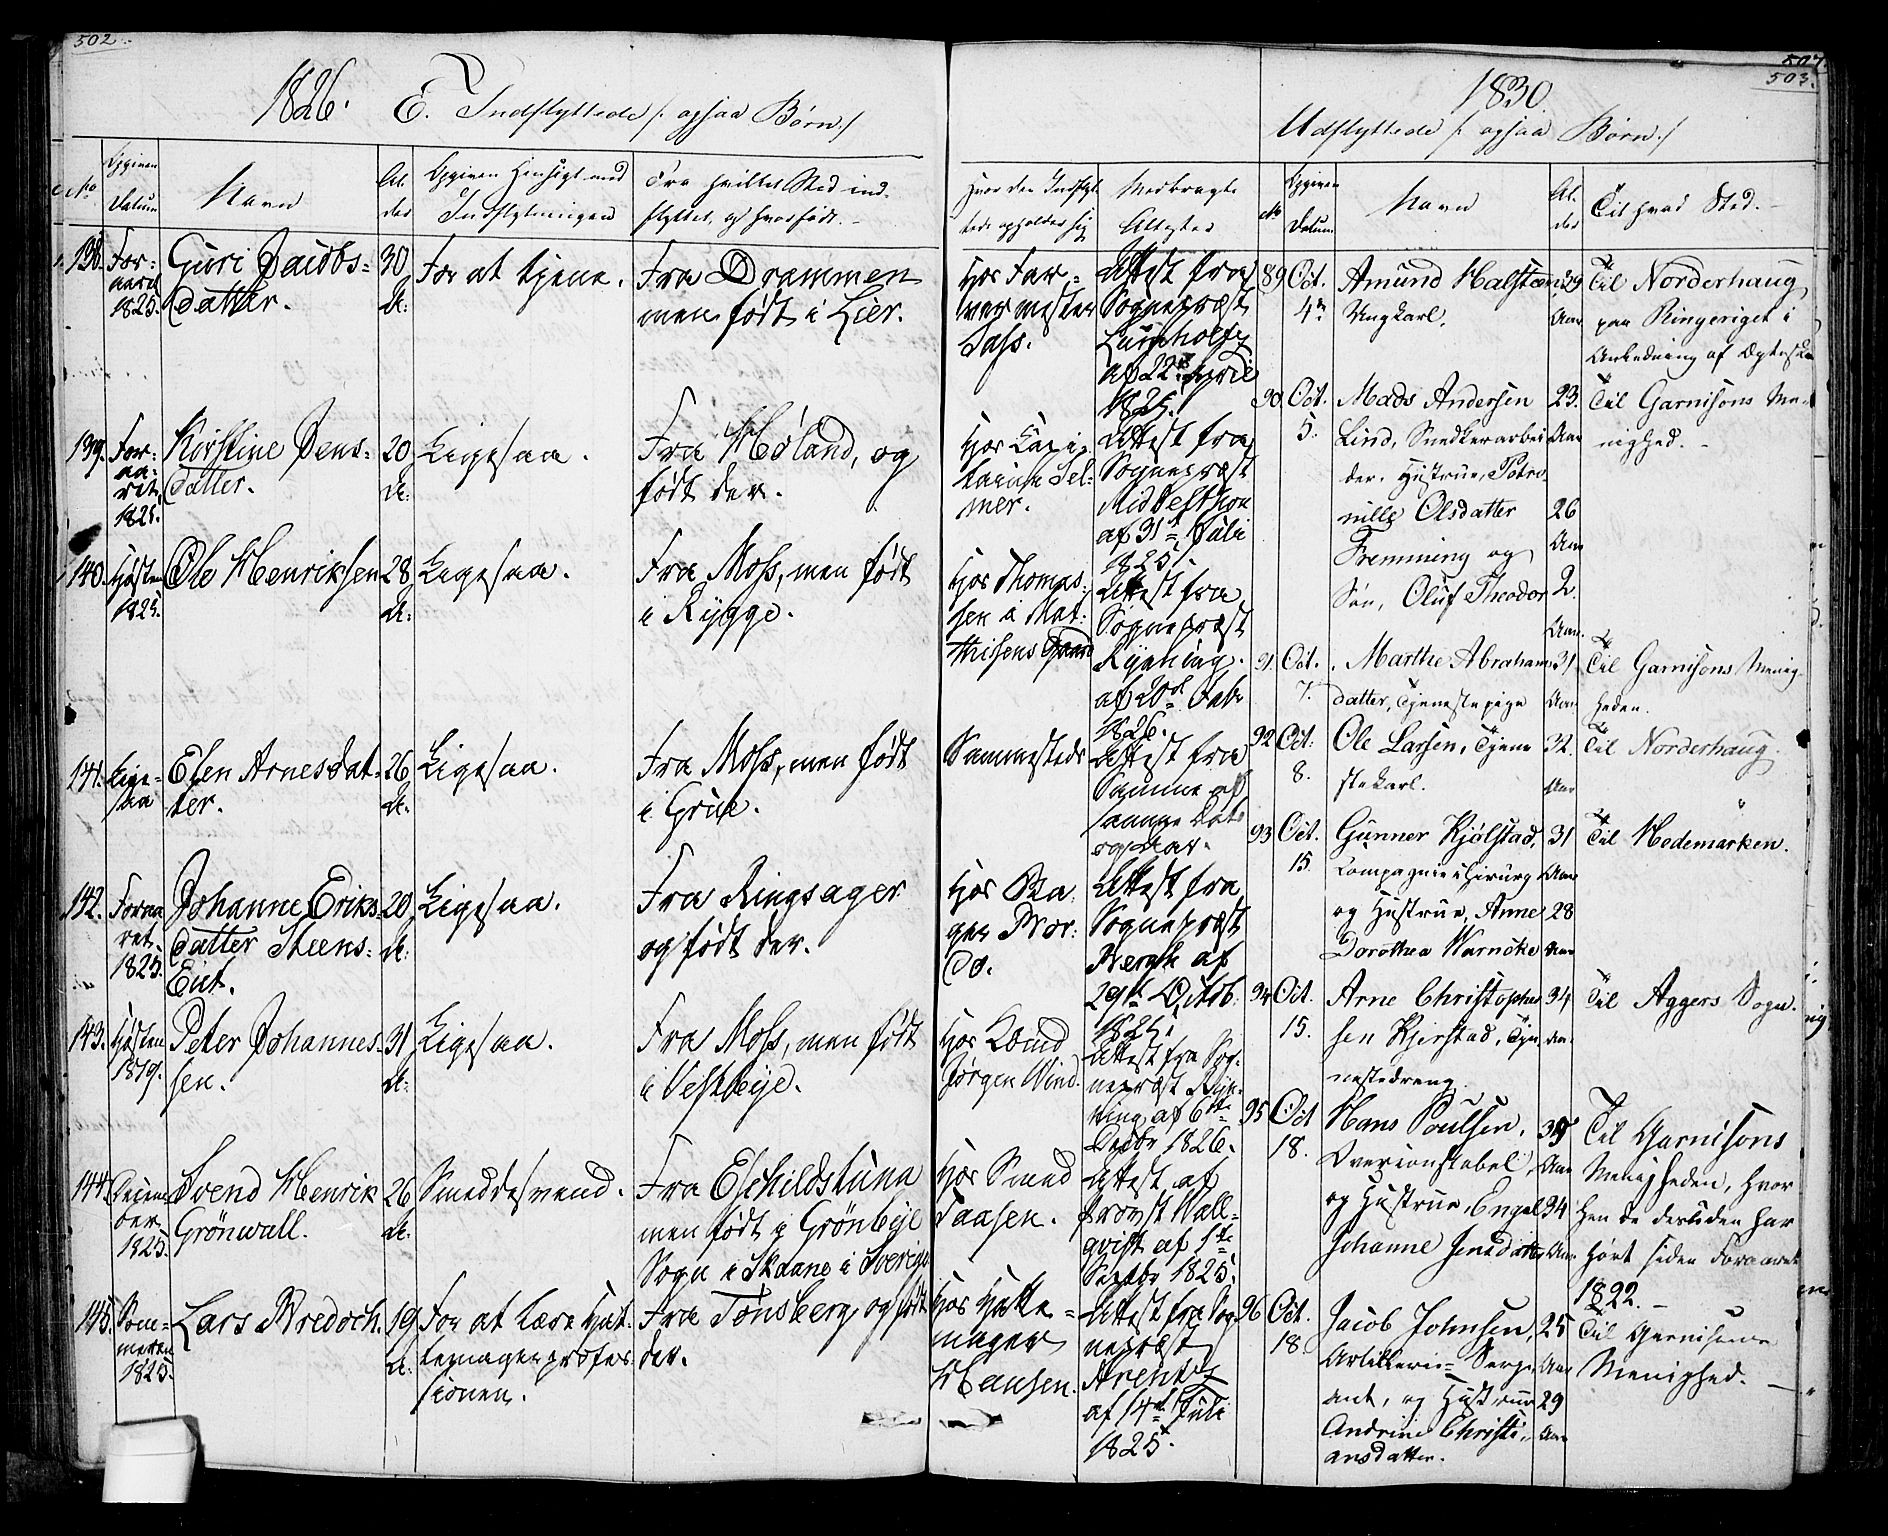 502
1826. E. Indflyttede /: ogsaa Børn :/
No
Opgiven Datum
Navn
Al-
der
Opgiven Hensigt med
Indflytningen
Fra hvilket Sted ind-
flyttet, og hvor født.
Hvor den Indflyt-
tede opholder sig
Medbragte
Attester
138.
For-
aaret
1825.
Guri Jacobs-
datter.
30
A:
For at tjene.
Fra Drammen
men født i Lier.
Hos Far-
vermester
Sass.
Attest fra
Sognepræst
Lumholtz
af 22de April
1825.
139.
For-
aa-
ret
1825.
Kirstine Jens-
datter.
20
A:
Ligesaa.
Fra Høland, og
født der.
Hos Capi-
taine Sel-
mer.
Attest fra
Sognepræst
Middelthon
af 31te Juli
1825.
140.
Høsten
1825.
Ole Henriksen
28
A:
Ligesaa.
Fra Moss, men født
i Rygge.
Hos Thomas-
sen i Mat-
thisens Gaard
Attest fra
Sognepræst
Rynning.
af 20de Feb.
1826.
141.
Lige-
saa
Elen Arnesdat-
ter.
26
A:
Ligesaa.
Fra Moss, men født
i Grue.
Sammesteds
Attest fra
Samme af
samme Dat.
og Aar.
142.
Foraa
ret
1825.
Johanne Eriks-
datter Steens-
Eiet.
20
A:
Ligesaa.
Fra Ringsager
og født der.
Hos Ba-
ger Bor-
Attest fra
Sognepræst
Bergh af
29de Octob.
1825.
143.
Høsten
1819.
Peter Johannes-
sen.
31
A:
Ligesaa.
Fra Moss, men født
i Vestbye.
Hos Kæmd
Jørgen Wind.
Attest fra Sog-
nepræst Ryn-
ning af 6te
Decbr 1826.
144.
Decem
ber
1825.
Svend Henrik
Grönwall.
26
A:
Smeddesvend.
Fra Eschildstuna
men født i Grönbeye
Sogn i Skaane i Sverige
Hos Smed
Paasen.
Attest af
Provst Wall-
qvist af 1te
Septbr 1825.
145.
Som-
meren
1825.
Lars Bredoch.
19
A:
For at lære Hat-
temagerprofes-
sionen.
Fra Tønsberg, og født
der.
Hos Hatte-
mager
Hansen.
Attest fra Sog-
nepræst
Arentz
af 14de Juli
1825.
507.
503.
1830.
Udflyttede /: ogsaa Børn :/
No
Opgiven
Datum
Navn
Al-
der
Til hvad Sted.
89
Oct.
4de
Amund Halsteen
Ungkarl.
29
Aar
Til Norderhaug
paa Ringeriget i
Anledning af Ægteska
90.
Oct.
5.
Mads Andersen
Lind, Snedkerarbei
der. Hustrue, Petro-
nille Olsdatter
Fremming og
Søn, Oluf Theodor
23.
Aar
26
Aar
2.
Aar.
Til Garnisons Me-
nighed.
91.
Oct.
7.
Marthe Abrahams
datter, Tjenestepige
31
Aar.
Til Garnisons Menig-
heden.
92
Oct:
8.
Ole Larsen, Tjene
stekarl.
32.
Aar
Til Norderhaug.
93
Oct.
15.
Gunner Kjølstad,
Compagnie-Chirurg
og Hustrue, Anne
Dorothea Warncke
31
Aar
28
Aar
Til Hedemarken.
94
Oct.
15.
Arne Christopher
sen Kjerstad, Tje-
nestedreng.
34
Aar.
Til Aggers Sogn.
95
Oct
18.
Hans Poulsen,
Overconstabel,
og Hustrue, Engel
Johanne Jensdatter
39
Aar
34
Aar.
Til Garnisons
Menigheden, hvor
hen de desuden har
hørt siden Foraaret
1822.
96
Oct.
18.
Jacob Johnsen,
Artillerie-Serge-
ant, og Hustrue
Andrine Christi-
ansdatter.
25
Aar
29
Aar
Til Garnisons
Menighed.